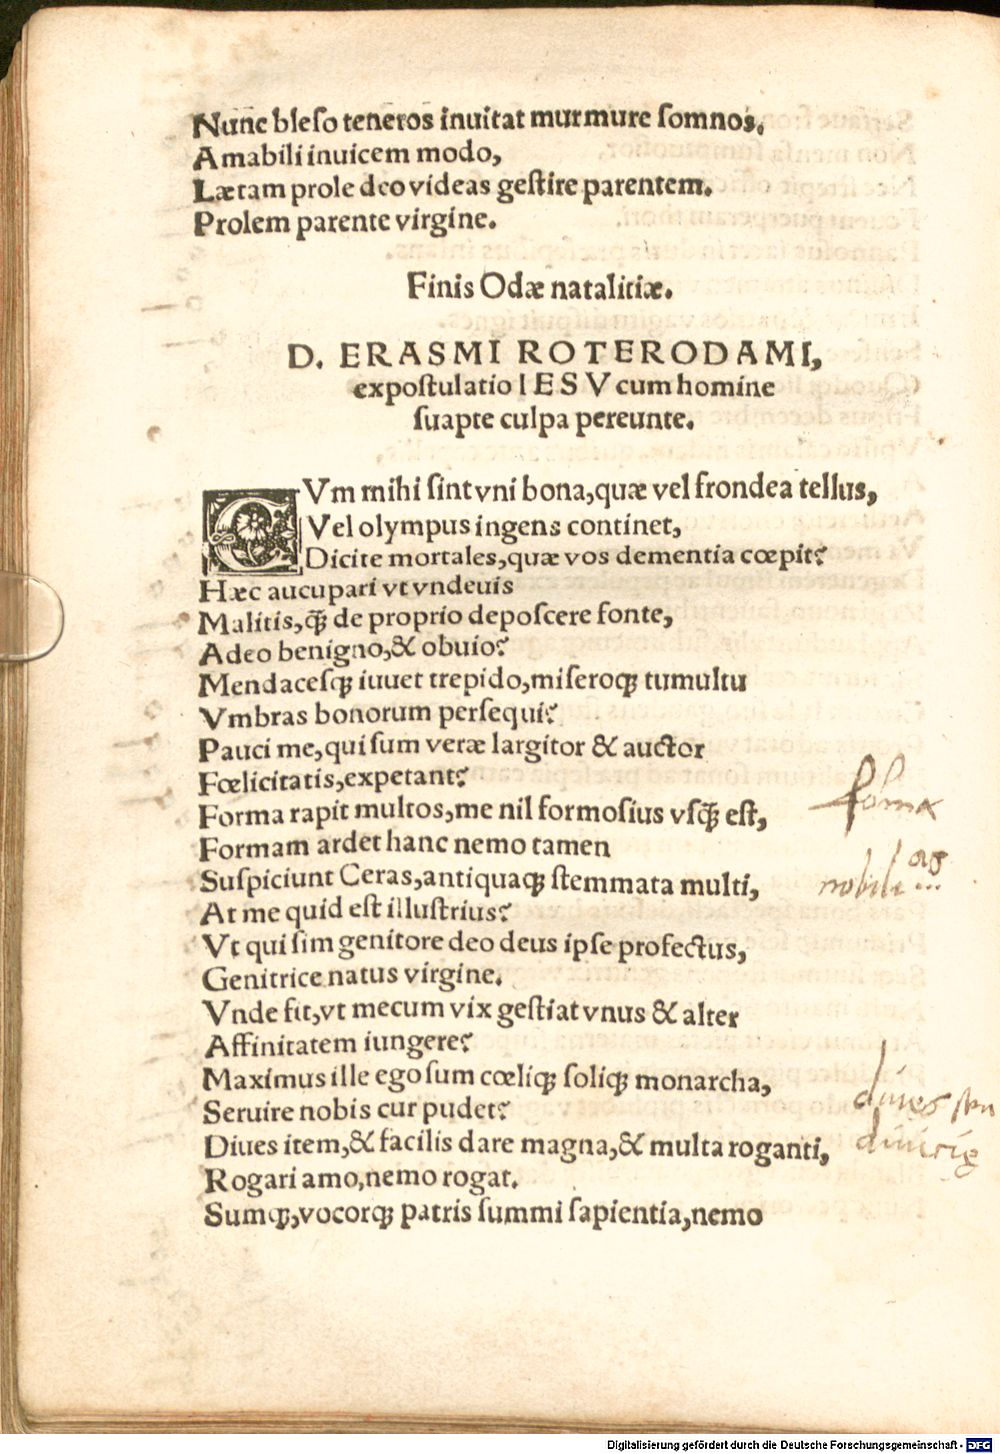 Nunc bleso teneros inuitat murmure somnos.
Amabili inuicem modo,
Lætam prole deo videas gestire parentem.
Prolem parente virgine.
Finis Odæ natalitiæ.
D. ERASMI ROTERODAMI,
expostulatio IESV cum homine
suapte culpa pereunte.
CVm mihi sint vni bona, quæ vel frondea tellus,
Vel olympus ingens continet,
Dicite mortales, quæ vos dementia cœpit?
Hæc aucupari vt vndeuis
Malitis, q̃ȝ de proprio deposcere fonte,
Adeo benigno, & obuio?
Mendacesqȝ iuuet trepido, miseroqȝ tumultu
Vmbras bonorum persequi?
Pauci me, qui sum veræ largitor & auctor
Fœlicitatis, expetant?
Forma rapit multos, me nil formosius vsq̃ȝ est,
Formam ardet hanc nemo tamen
Suspiciunt Ceras, antiquaqȝ stemmata multi,
At me quid est illustrius?
Vt qui sim genitore deo deus ipse profectus,
Genitrice natus virgine.
Vnde fit, vt mecum vix gestiat vnus & alter
Affinitatem iungere?
Maximus ille ego sum cœliqȝ soliqȝ monarcha,
Seruire nobis cur pudet?
Diues item, & facilis dare magna, & multa roganti,
Rogari amo, nemo rogat.
Sumqȝ, vocorqȝ patris summi sapientia, nemo
forma
diues
Digitalisierung gefördert durch die Deutsche Forschungsgemeinschaft - DFG